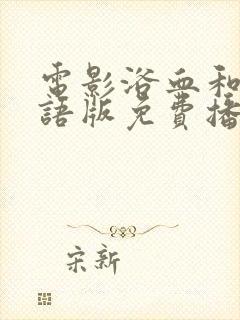 電影浴血和
語版免費播
宋新